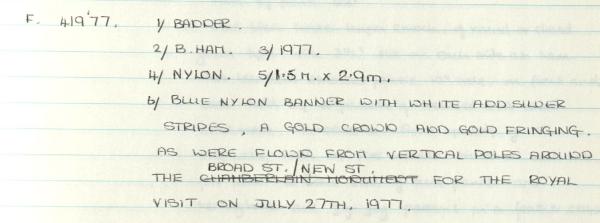 F. 419'77. 1/ BANNER.
2/ B.HAM. 3/ 1977.
4/ NYLON. 5/ 1.5 M. x 2.9m.
6/ BLUE NYLON BANNER WITH WHITE AND SILVER
STRIPES, A GOLD CROWN AND GOLD FRINGING.
AS WERE FLOWN FROM VERTICAL POLES AROUND
BROAD ST. / NEW ST.
THE CHAMBERLAIN MONUMENT FOR THE ROYAL
VISIT ON JULY 27TH, 1977.